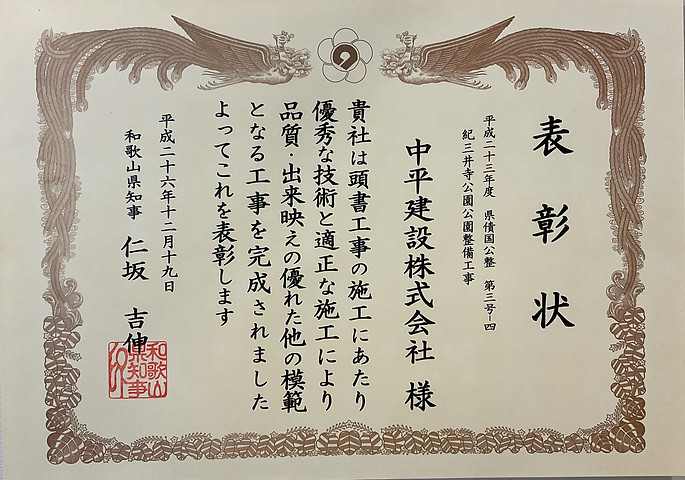 表彰状
平成二十三年度 県債国公整 第三号-四
紀三井寺公園公園整備工事
中平建設株式会社 様
貴社は頭書工事の施工にあたり
優秀な技術と適正な施工により
品質・出来映えの優れた他の模範
となる工事を完成されました
よってこれを表彰します
平成二十六年十二月十九日
和歌山県知事 仁坂 吉伸
和歌山県知事之印